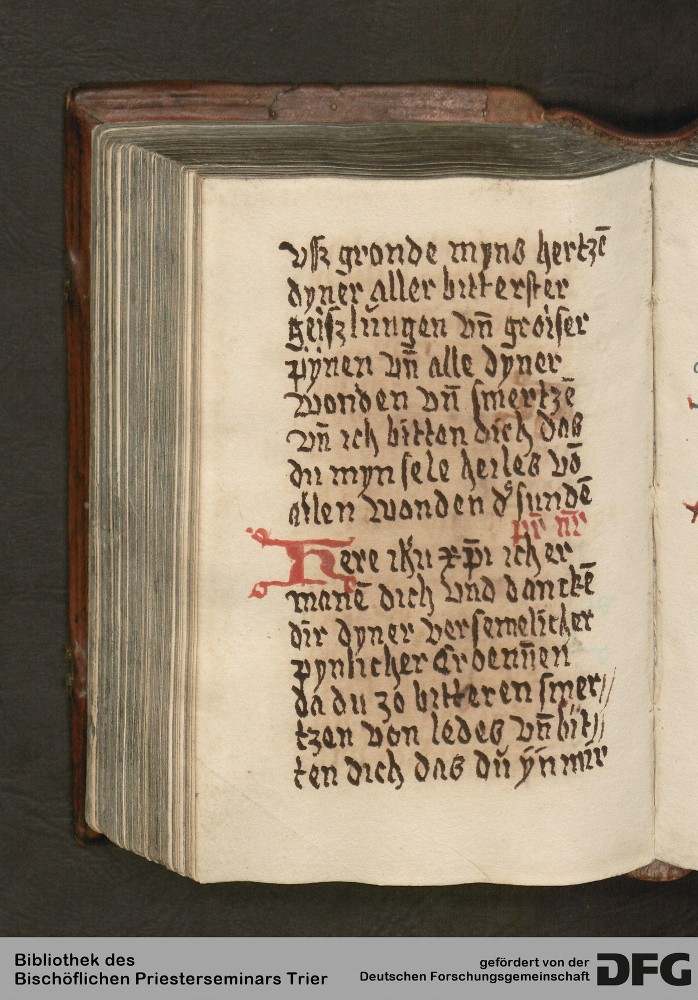 vſz gronde myns hertzē
dyner aller bitterſter
geiſzlŭngen vn̄ groiſer
pÿnen vn̄ alle dyner
wonden vn̄ ſmertzē
vn̄ ich bitten dich das
du myn ſele heiles vō
allen wonden d' ſundē
pr̄ nr̄
Here ihū xp̄i ich er
manē dich vnd danckē
dir dyner verſemelicher
pynlicher Croenūen
da du zo bitteren ſmer//
tzen von ledes vn̄ bit//
ten dich das dŭ ÿn mir
Bibliothek des
Bischöflichen Priesterseminars Trier
gefördert von der
Deutschen Forschungsgemeinschaft
DFG